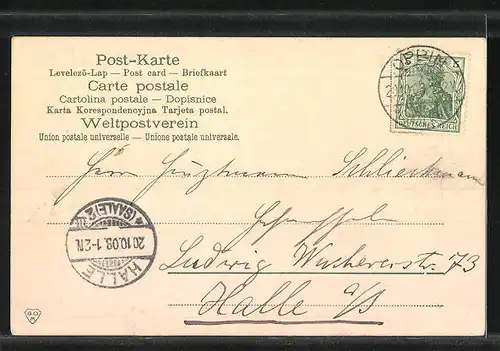 Post-Karte
Levelező-Lap — Post card — Briefkaart
Carte postale
Cartolina postale — Dopisnice
Karta Korespondencyjna Tarjeta postal.
Weltpostverein
Union postale universelle — Unione postale universale.
OPPIN
DEUTSCHES REICH
5
Herrn
Ludwig Wuchererstr. 73
Halle a/S
HALLE
20.10.03. 1-2N.
(SAALE) 2